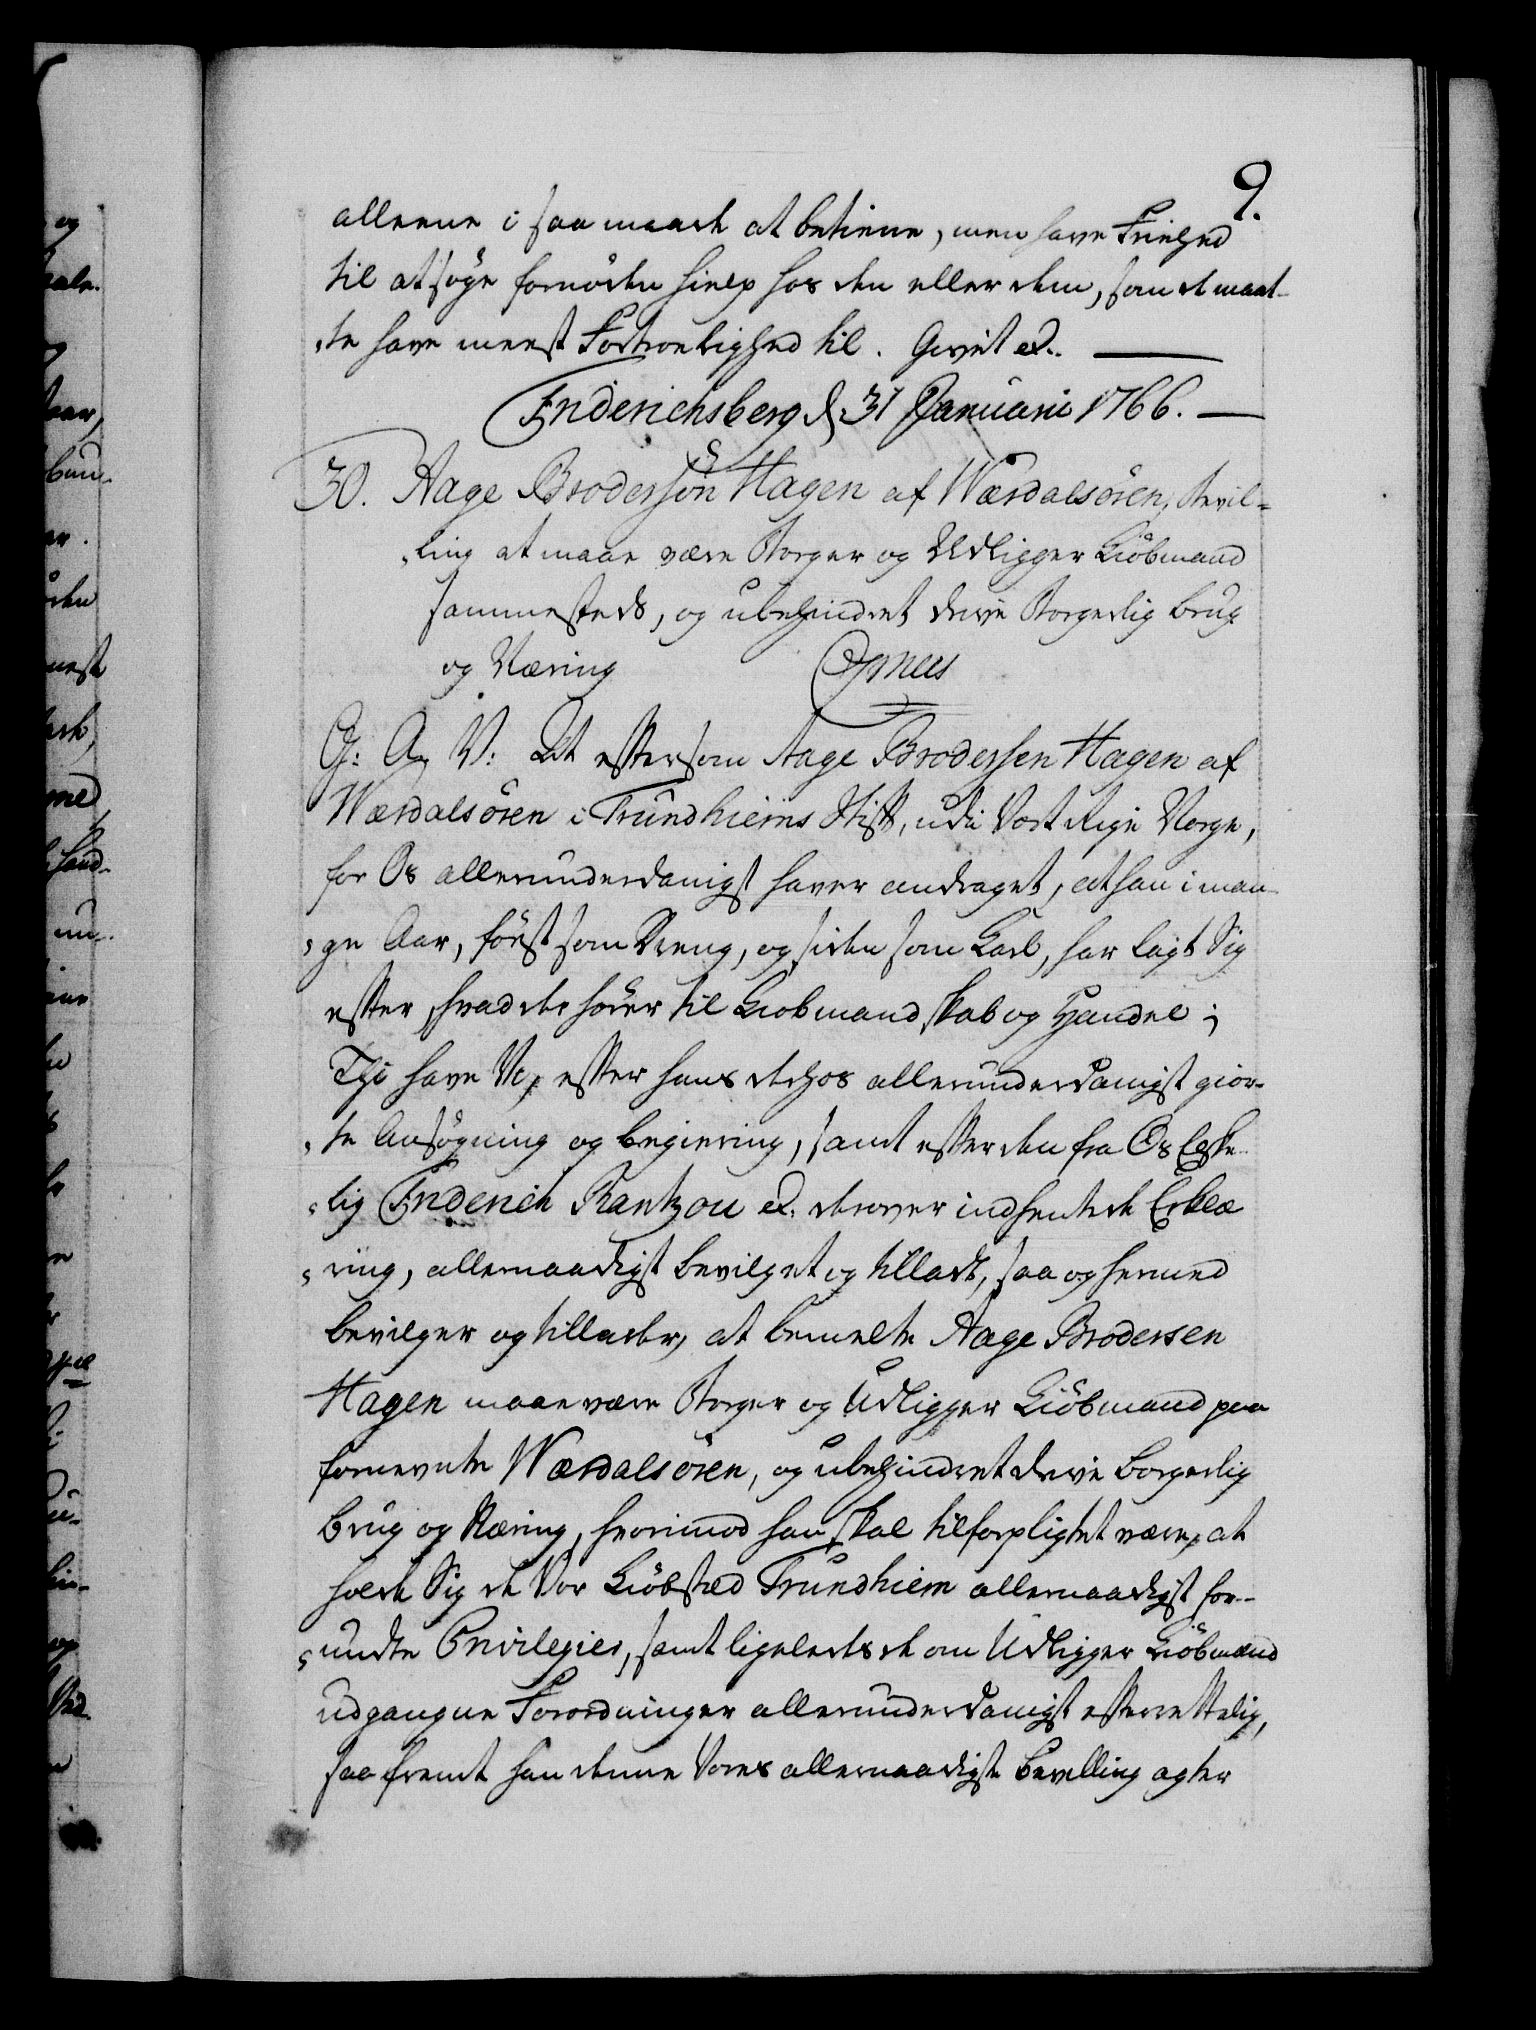 9.
alleene i saa maade at betiene, men have Friehed
til at søge fornøden hielp hos den eller dem, som de maat-
te have meest Fortroelighed til. Givet etc.
Friderichsberg d. 31 Januarii 1766.
30. Aage Brodersøn Hagen af Wærdalsøren, Bevil-
ling at maae være Borger og Udligger Kiøbmand
sammesteds, og ubehindret drive Borgerlig brug
og Næring Gr
G: A: V: At eftersom Aage Brodersen Hagen af
Wærdalsøren i Trundhiems Stift, udi Vort Rige Norge,
for Os allerunderdanigst haver andraget, at han i man-
ge Aar, først som Dreng, og siden som Karl, har lagt Sig
efter, hvad der hører til Kiøbmandskab og Handel;
Thi have Vi, efter hans derhos allerunderdanigst gior-
te Ansøgning og begiering, samt efter den fra Os Elske-
lig Friderich Rantzou etc. derover indhentede Erklæ
ring, allernaadigst bevilget og tilladt, saa og hermed
bevilger og tillader, at bemelte Aage Brodersen
Hagen maae være Borger og Udligger Kiøbmand paa
fornevnte Wærdalsøren, og ubehindret drive borgerlig
brug og Næring, hvorimod han skal tilforpligtet være, at
holde Sig de Vor Kiøbsted Trundhiem allernaadigst for-
undte Privilegier, samt ligeledes de om Udligger Kiøbmænd
udgangne Forordninger allerunderdanigst efterrettelig,
saafremt han denne Vores allernaadigste bevilling agter